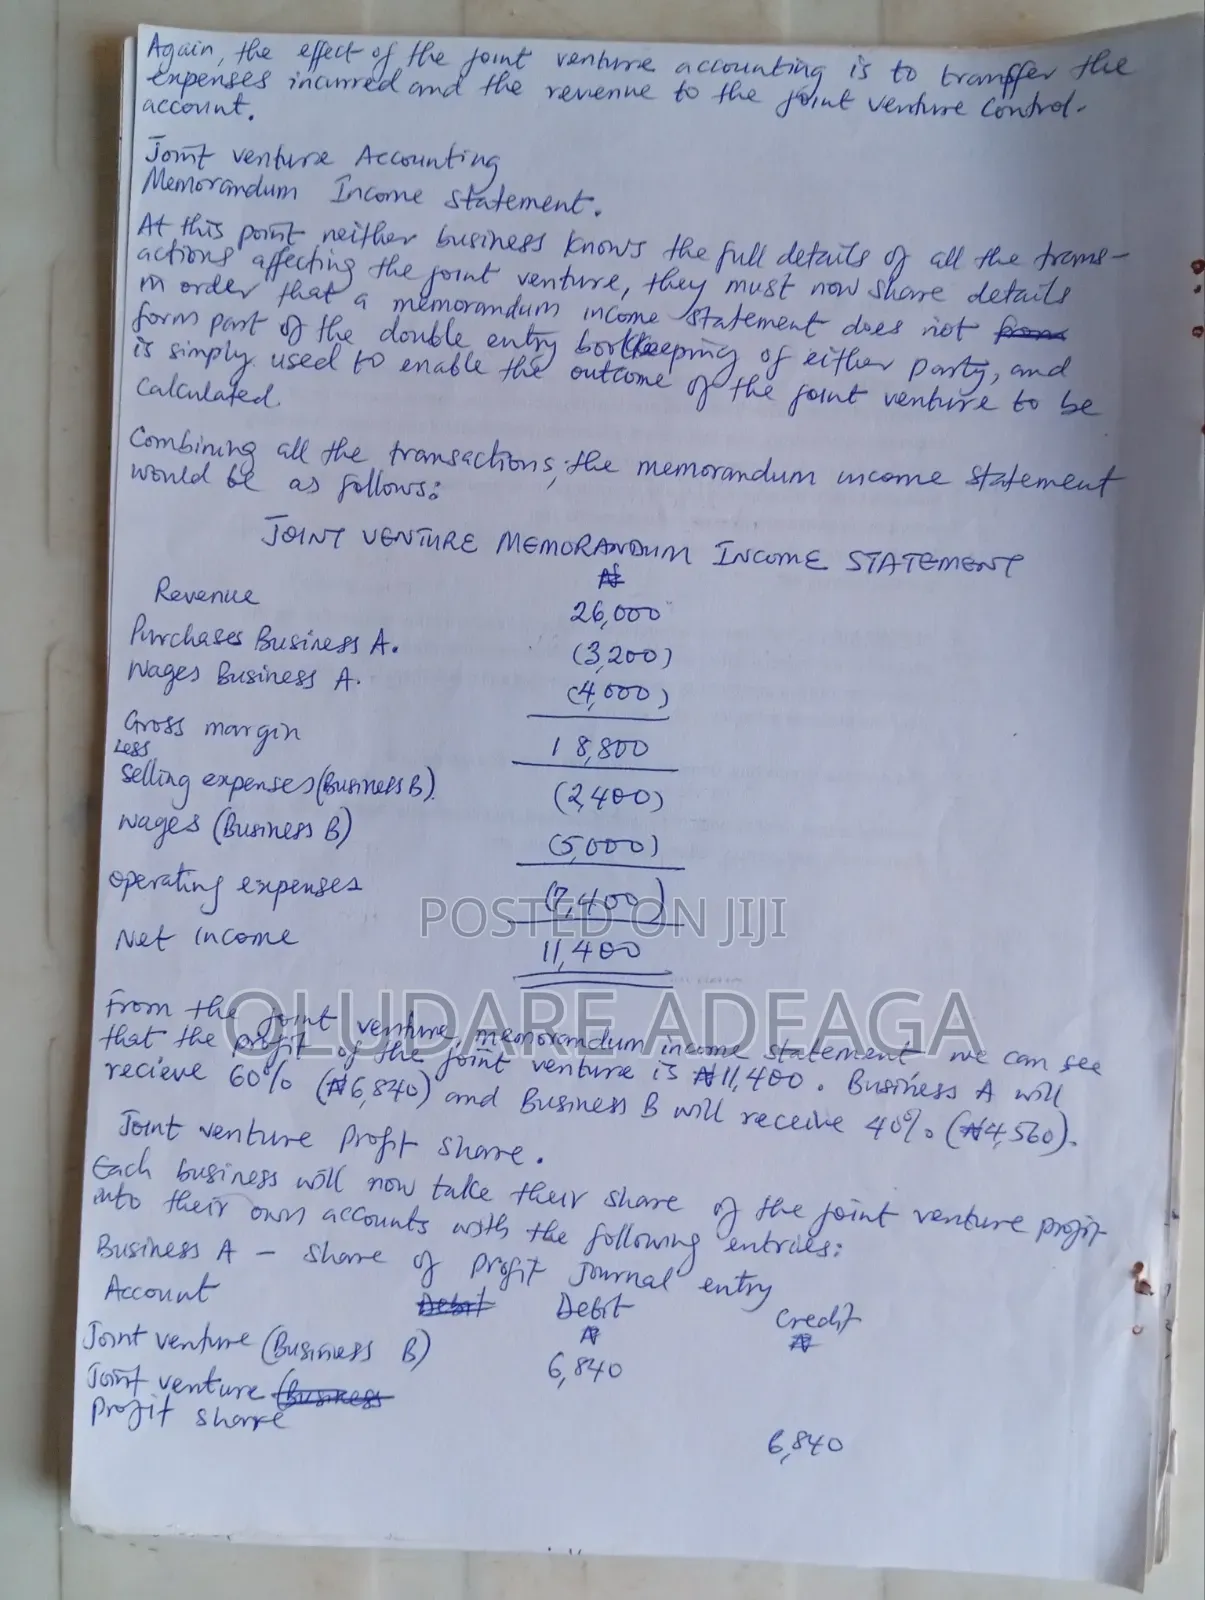 Again, the effect of the joint venture accounting is to transfer the
expenses incurred and the revenue to the joint venture control-
account.
Joint venture Accounting
Memorandum Income statement.
At this point neither business knows the full details of all the trans-
actions affecting the joint venture, they must now share details
in order that a memorandum income statement does not form
form part of the double entry bookkeeping of either party, and
is simply used to enable the outcome of the joint venture to be
calculated.
Combining all the transactions, the memorandum income statement
would be as follows:
JOINT VENTURE MEMORANDUM INCOME STATEMENT
₦
Revenue 26,000
Purchases Business A. (3,200)
Wages Business A. (4,000)
Gross margin 18,800
Less
Selling expenses (Business B). (2,400)
Wages (Business B) (5,000)
Operating expenses (7,400)
Net income 11,400
POSTED ON JIJI
OLUDARE ADEAGA
From the joint venture, memorandum income statement we can see
that the profit of the joint venture is ₦11,400. Business A will
recieve 60% (₦6,840) and Business B will receive 40% (₦4,560).
Joint venture profit share.
Each business will now take their share of the joint venture profit
into their own accounts with the following entries:
Business A - share of profit Journal entry
Account Debit Debit Credit
₦ ₦
Joint venture (Business B) 6,840
Joint venture (Business
Profit share 6,840